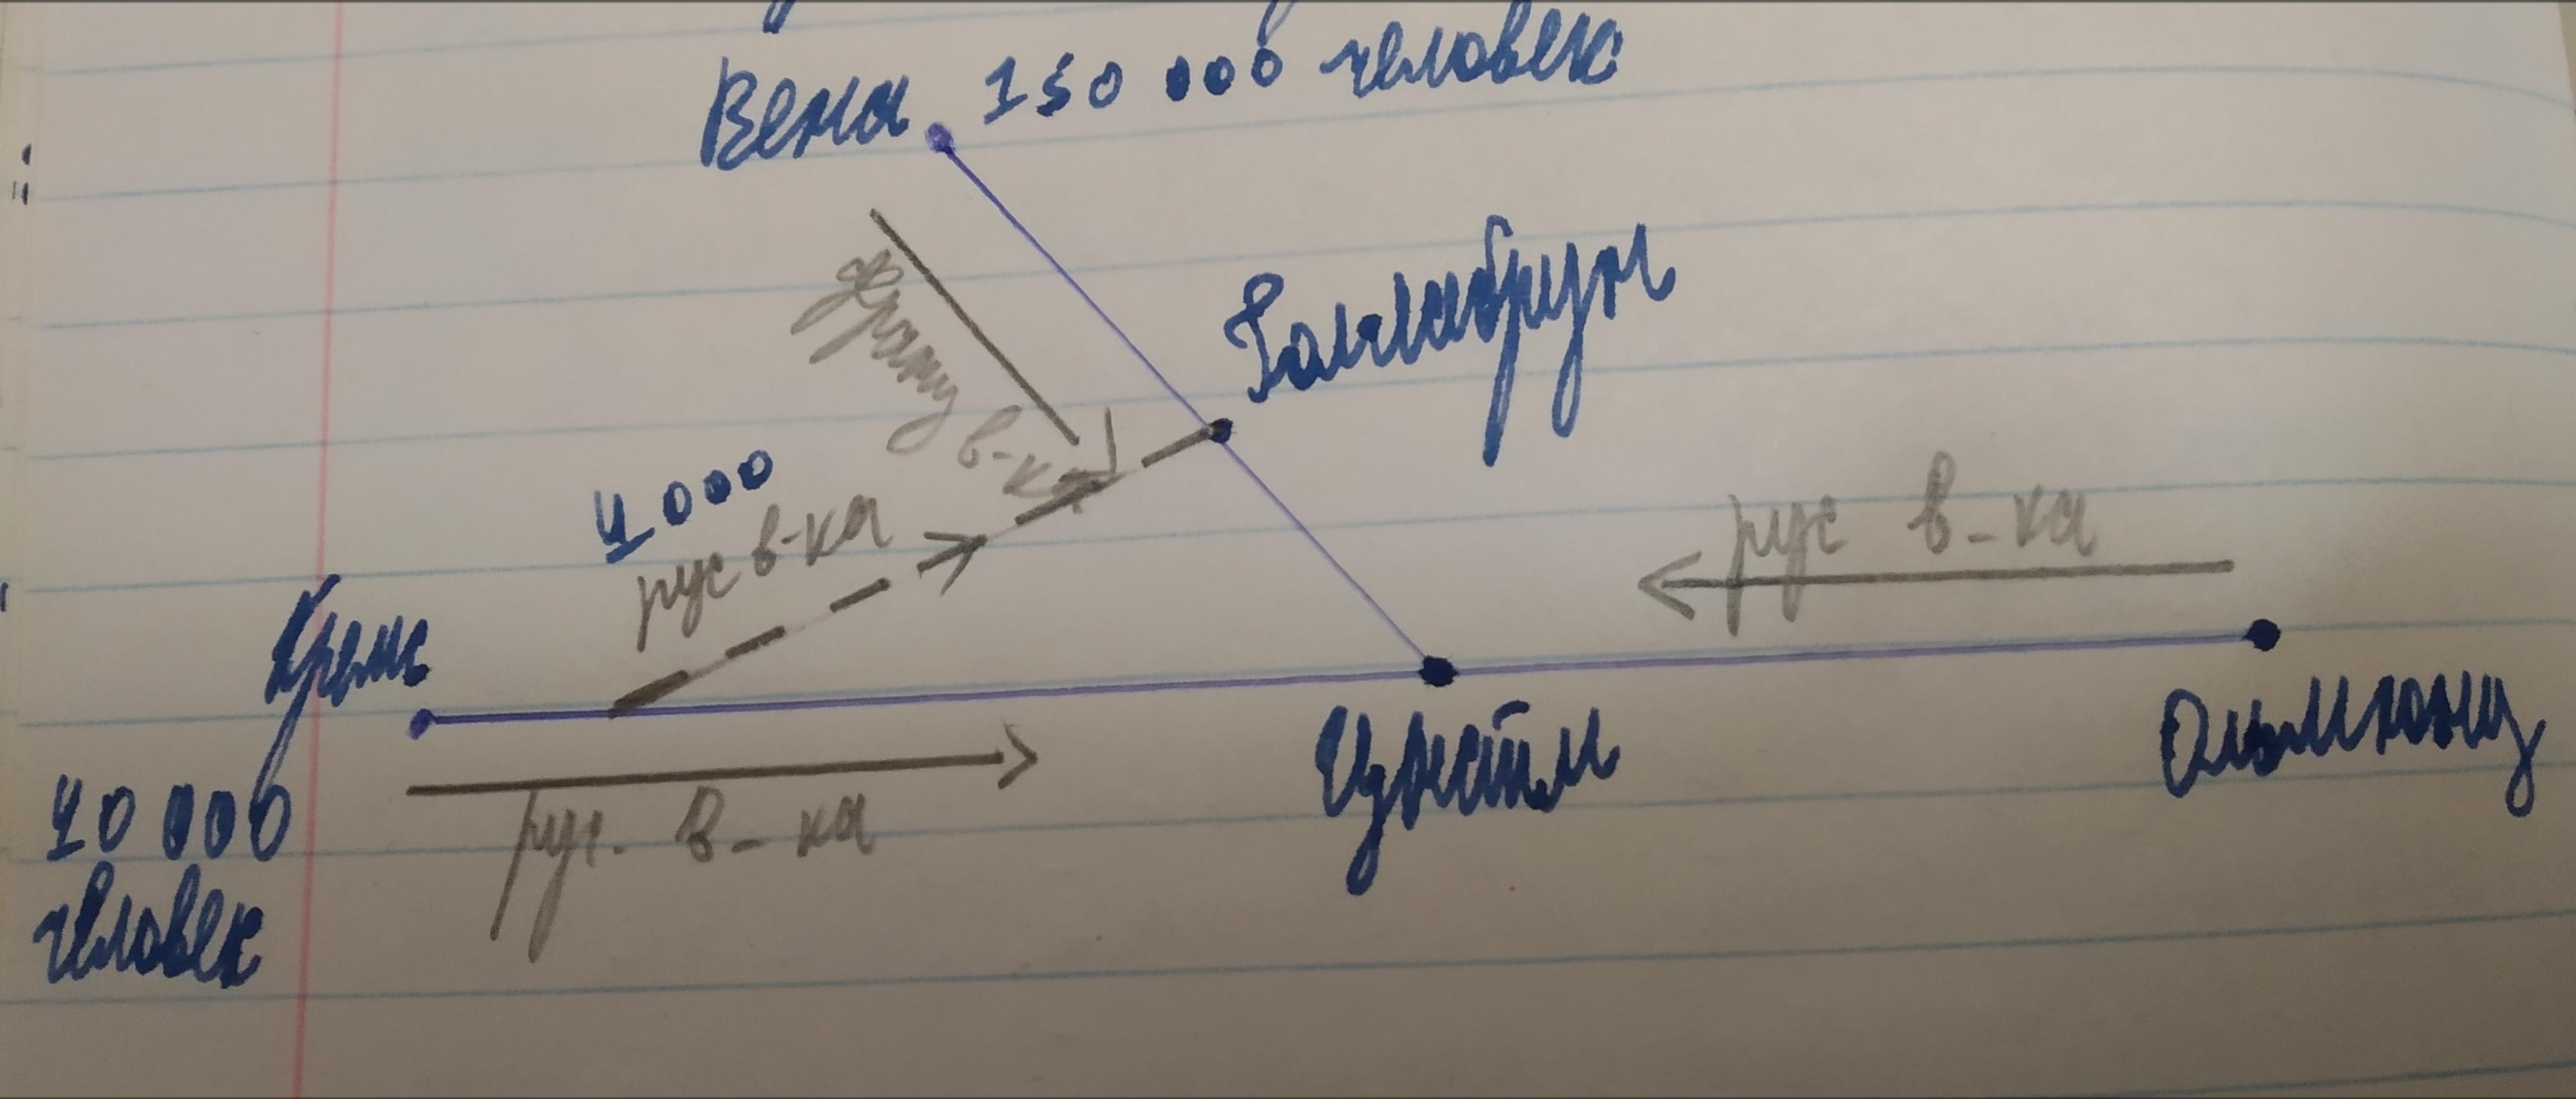 Вена 150 000 человек
Голлабрун
франц в-ка
4 000
рус в-ка
рус в-ка
Кремс
40 000
человек
рус. в-ка
Цнайм
Ольмюнц